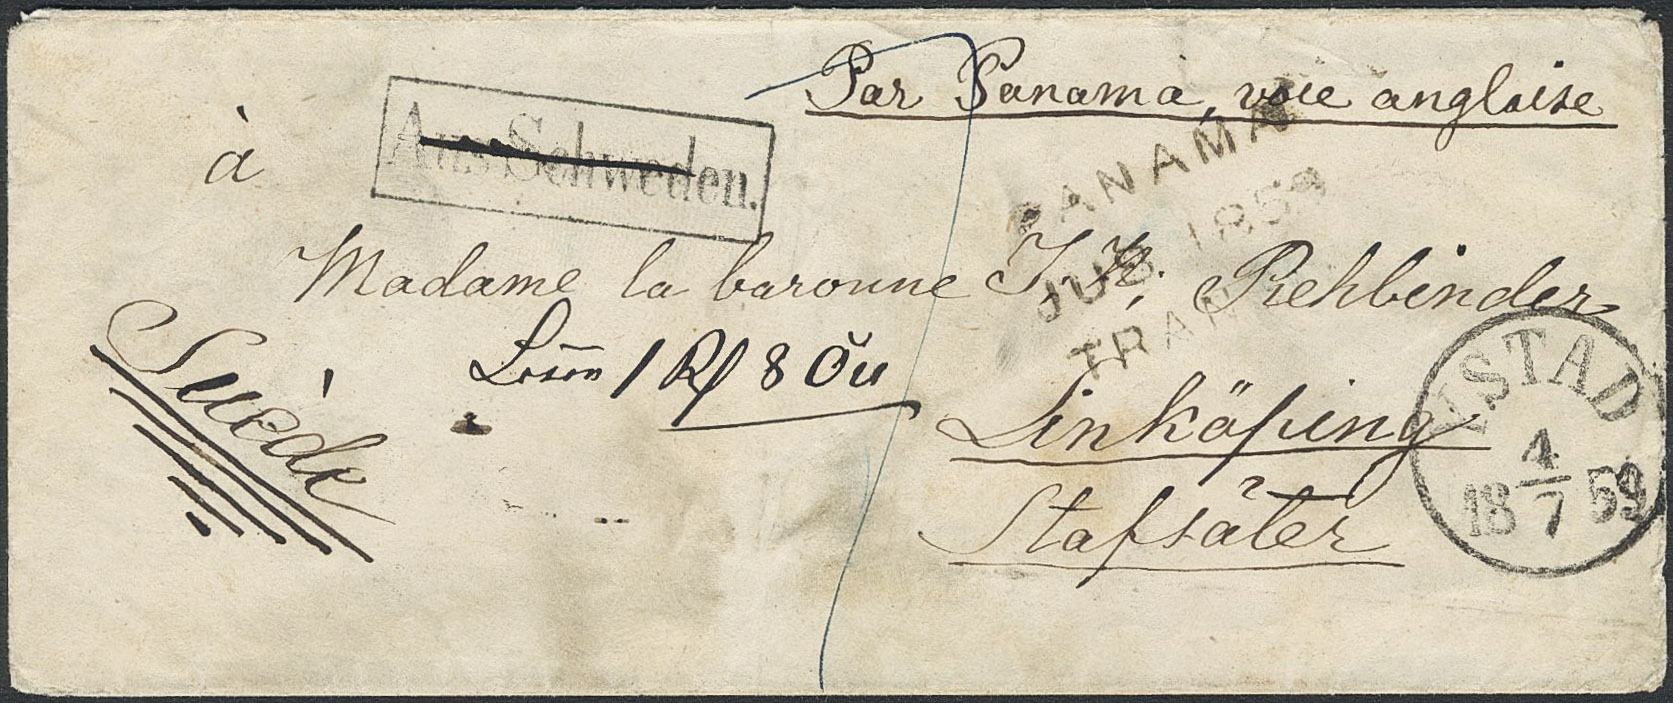 Par Panama, voie anglaise
Aus Schweden.
à
PANAMA
1859
TRAN
Madame la baronne Rehbinder
Suède
1 Rd 8 Öre
Linköping
Stafsäter
YSTAD
4
18 7 59